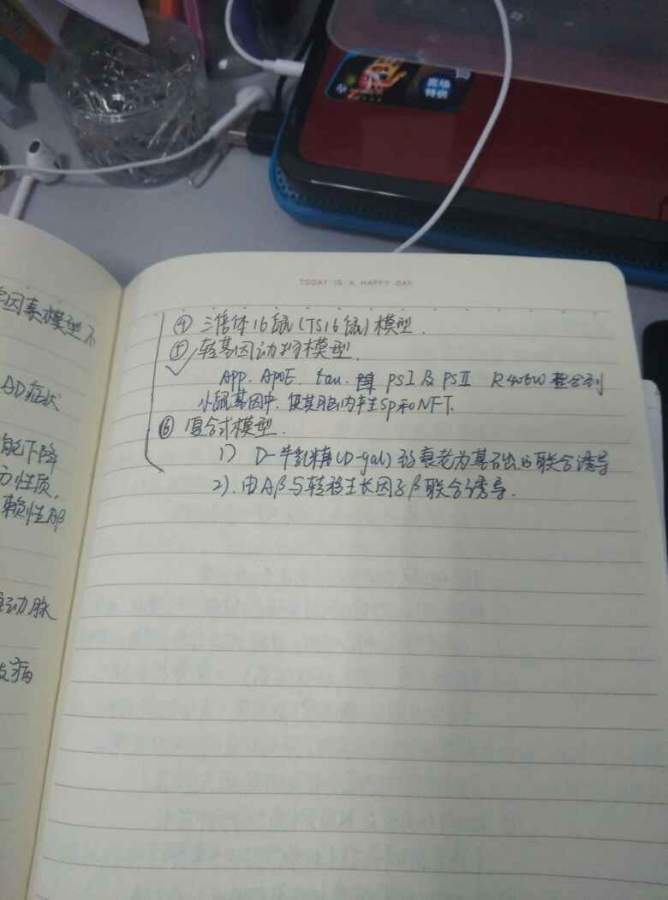 因素模型不
AD症状
能下降
性质,
赖性Aβ
动脉
病
TODAY IS A HAPPY DAY
④ 三倍体16鼠(TS16鼠)模型.
⑤ 转基因动物模型.
APP. ApoE. tau. PSI及PSII R406W 整合到
小鼠基因中,使其脑内产生SP和NFT.
⑥ 复合式模型.
1) D-半乳糖(D-gal)致衰老为基础的联合诱导
2).由Aβ与转移生长因子β联合诱导.